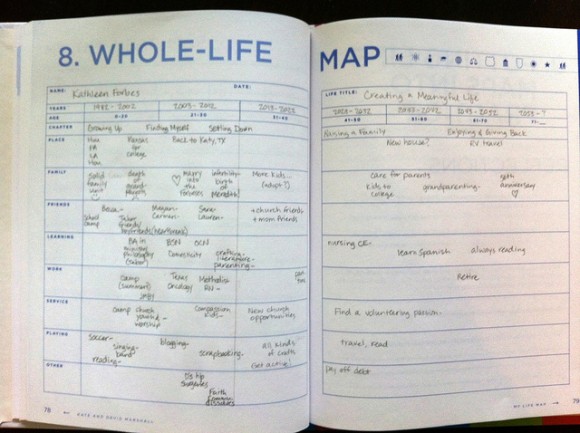 8. WHOLE-LIFE MAP
NAME: Kathleen Forbes DATE:
YEARS 1982-2002 2003-2012 2013-2022
AGE 0-20 21-30 31-40
CHAPTER Growing Up Finding Myself Settling Down
PLACE
Kansas for college
Back to Katy, TX
FAMILY
solid family unit
death of grandparents
marry into the Forbeses
infertility
birth of Meredith!
More kids...
(adopt?)
FRIENDS
Megan-
Carmen-
Sara-
Lauren-
+church friends
+mom friends
LEARNING
BA in
philosophy
BSN
OCN
crafting-
parenting-
WORK
camp
(summers)
Texas
Oncology
Methodist
RN-
part
time
SERVICE
camp
church
youth &
worship
Compassion
kids-
New church
opportunities
PLAYING
soccer-
singing-
band
reading-
blogging-
scrapbooking-
all kinds
of crafts
Get active!
OTHER
Faith
78 KATE AND DAVID MARSHALL
LIFE TITLE: Creating a Meaningful Life
41-50 51-60 61-70 71-
Raising a Family Enjoying & Giving Back
New house? RV travel
care for parents
kids to
college
grandparenting-
50th
anniversary
nursing CE-
learn Spanish
always reading
Retire
Find a volunteering passion-
travel, read
pay off debt
MY LIFE MAP 79